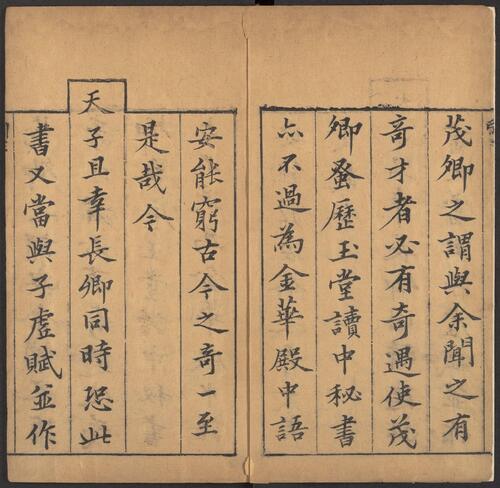 茂卿之謂與余聞之有
奇才者必有奇遇使茂
卿蚤歷玉堂讀中秘書
亦不過為金華殿中語
安能窮古今之奇一至
是哉今
天子且幸長卿同時恐此
書又當與子虛賦並作